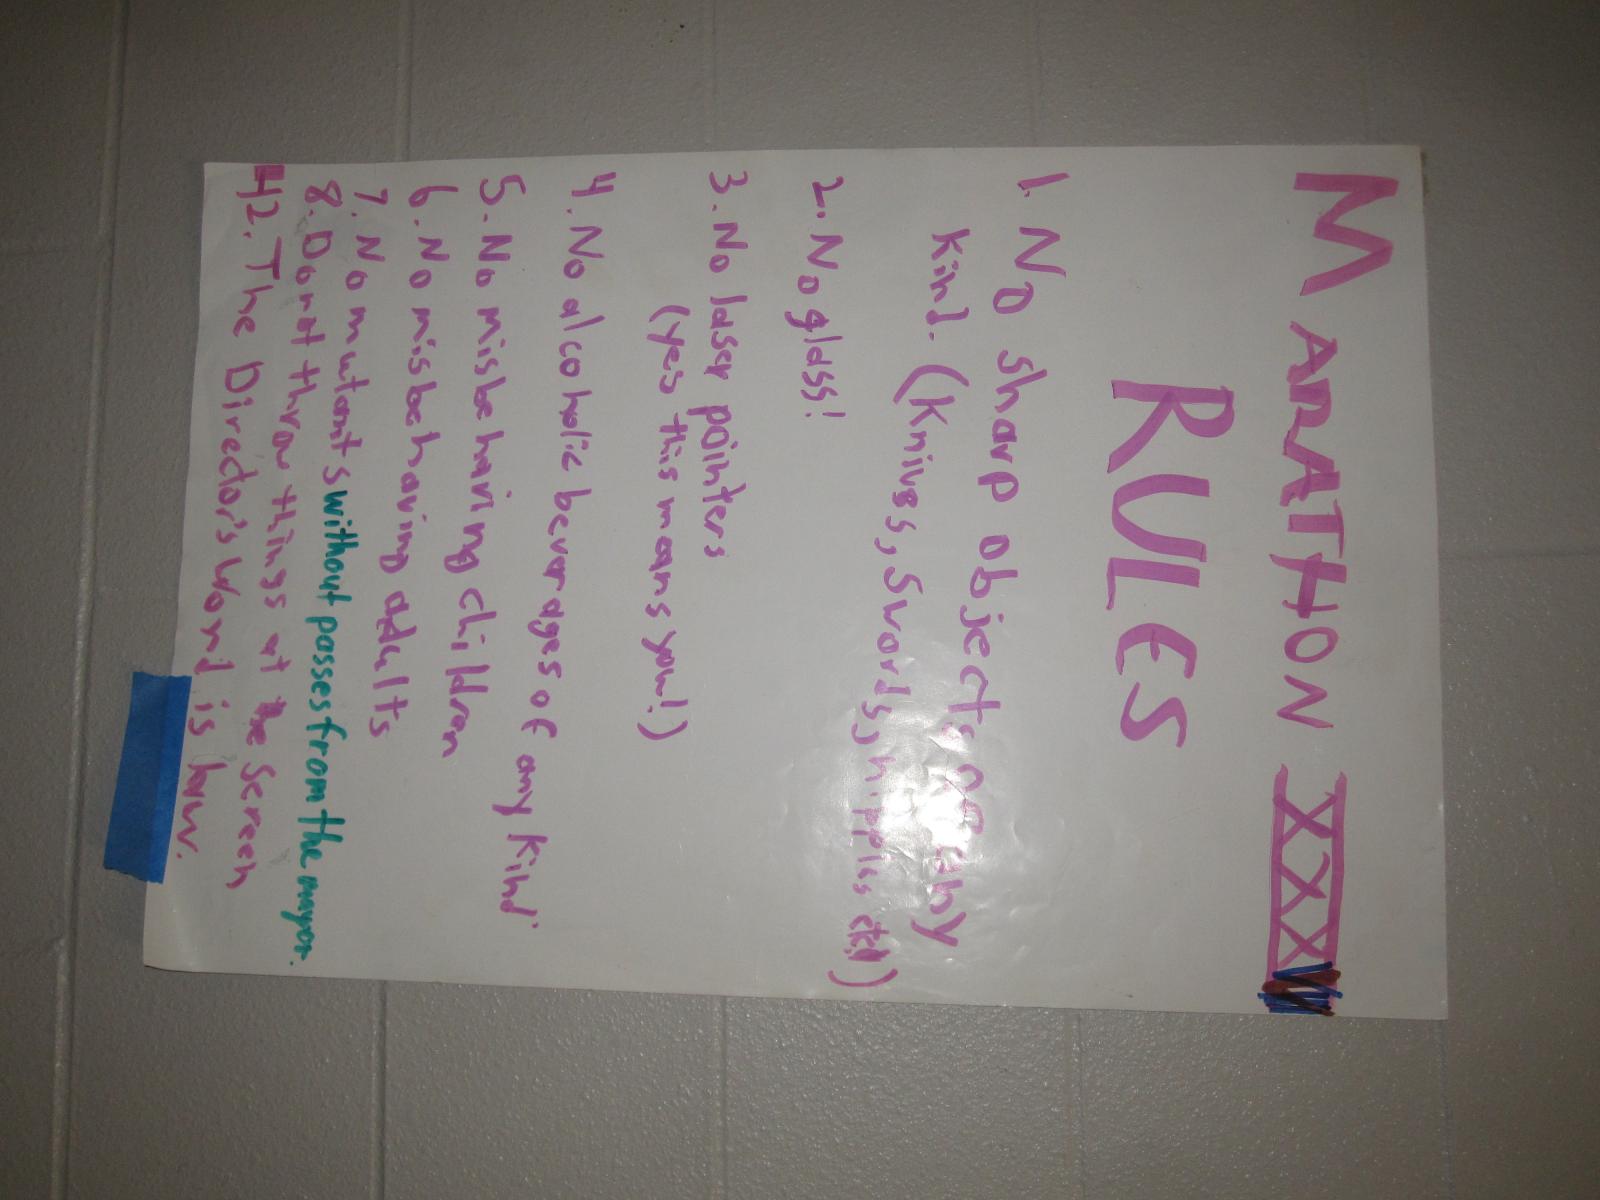 MARATHON XXX
RULES
1. NO sharp objects of any
kind. (Knives, Swords, hippies etc.)
2. No glass!
3. No laser pointers
(yes this means you!)
4. No alcoholic beverages of any kind.
5. No misbehaving children
6. No misbehaving adults
7. No mutants without posses from the mayor.
8. Do not throw things at the Screen
42. The Director's Word is law.